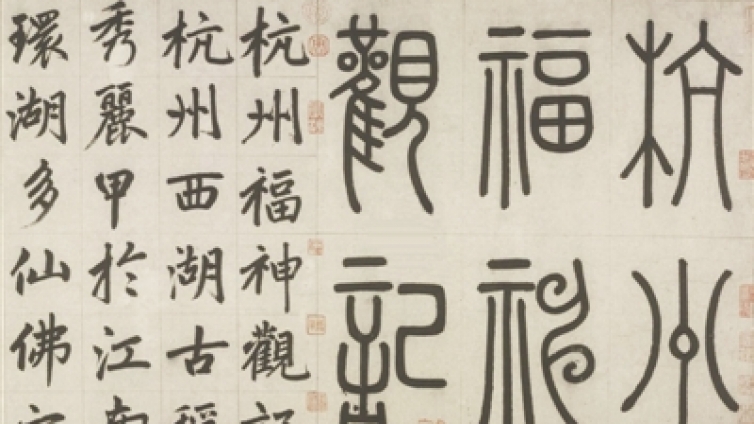 杭州
福神
觀記
杭州福神觀記
杭州西湖古稱
秀麗甲於江南
環湖多仙佛宮